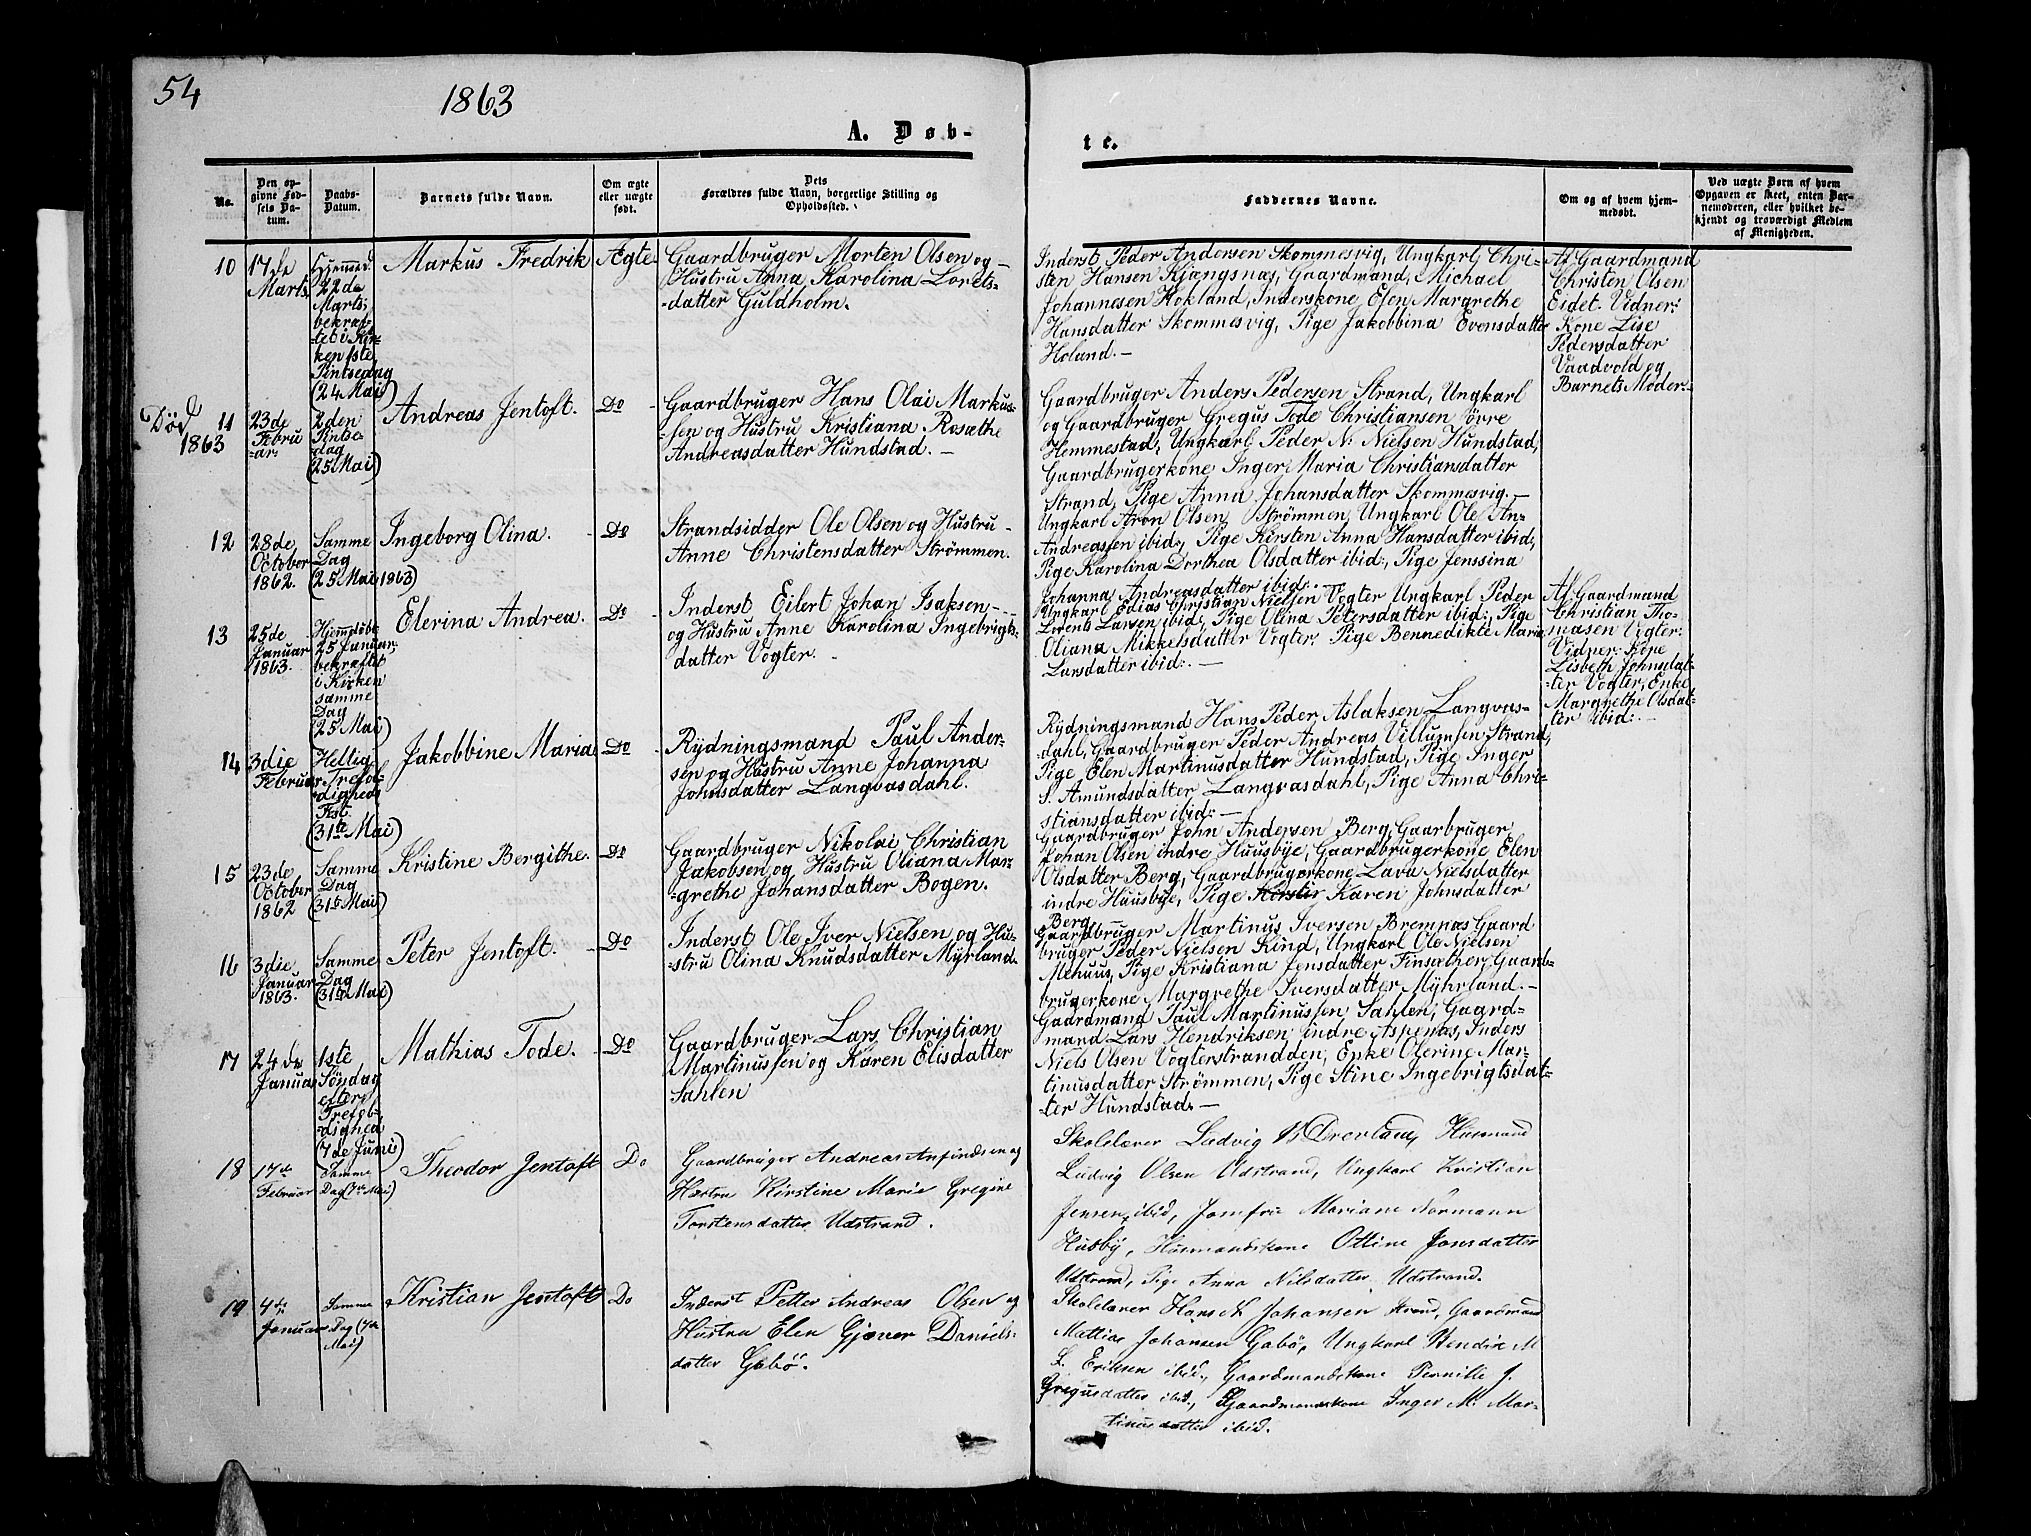 54
1863
A. Døb-
te.
No.
Den op-
givne Fød-
sels Da-
tum.
Daabs-
Datum.
Barnets fulde Navn.
Om ægte
eller uægte
født.
Dets
Forældres fulde Navn, borgerlige Stilling og
Opholdssted.
Faddernes Navne.
Om og af hvem hjem-
medøbt.
Ved uægte Børn af hvem
Opgaven er skeet, enten Bar-
nemoderen, eller hvilket be-
kjendt og troværdigt Medlem
af Menigheden.
10
17de
Marts
Hjemmed.
22de
Marts,
bekræf-
tet i Kir-
ken 1ste
Pintsedag
(24 Mai)
Markus Fredrik
Ægte
Gaardbruger Morten Olsen og
Hustru Anna Karolina Lorets-
datter Guldholm.
Inderst Peder Andersen Skommesvig, Ungkarl Chri-
sten Hansen Kjøngsnæs, Gaardmand, Michael
Johannesen Hokland, Inderskone Elen Margrethe
Hansdatter Skommesvig, Pige Jakobbina Evensdatter
Holund.
Af Gaardmand
Christen Olsen
Eidet. Vidner:
Kone Lise
Pedersdatter
Vaadvold og
Barnets Moder.
Død
1863
11
23de
Febru
ar.
2den
Pintse-
dag
(25 Mai)
Andreas Jentoft.
Do
Gaardbruger Hans Olai Markus-
sen og Hustru Kristiana Rosathe
Andreasdatter Hundstad.
Gaardbruger Anders Pedersen Strand, Ungkarl
og Gaardbruger Gregus Tode Christiansen Övre
Hemmestad, Ungkarl Peder N: Nielsen Hundstad,
Gaardbrugerkone Inger Maria Christiansdatter
Strand, Pige Anna Johansdatter Skommesvig.
12
28de
October
1862.
Samme
Dag
(25 Mai 1863)
Ingeborg Olina.
Do
Strandsidder Ole Olsen og Hustru
Anne Christensdatter Strömmen.
Ungkarl Aron Olsen Strömmen, Ungkarl Ole An-
Andreassen ibid:, Pige Kirsten Anna Hansdatter ibid,
Pige Karolina Dorthea Olsdatter ibid:, Pige Jenssina
Johanna Andreasdatter ibid:.
13
25de
Januar
1863.
Hjemdöbt
25 Januar.
bekræftet
i Kirken
samme
Dag
(25 Mai)
Elerina Andrea.
Do
Inderst Eilert Johan Isaksen
og Hustru Anne Karolina Ingebrigts-
datter Vogter.
Ungkarl Edias Christian Nielsen Vogter Ungkarl Peder
Lorents Larsen ibid, Pige Olina Petersdatter ibid:, Pige
Oliana Mikkelsdatter Vogter, Pige Bennedikte Maria
Larsdatter ibid:.
Af Gaardmand
Christian Tho-
masen Vogter:
Vidner: Kone
Lisbeth Johnsdat-
ter Vogter, Enke
Margrethe Olsdat-
ter ibid:.
14
3die
Februar
Hellig
Trefol-
dighed
Fest.
(31te Mai)
Jakobbine Maria
Do
Rydningsmand Paul Ander-
sen og Hustru Anne Johanna
Johnsdatter Langvasdahl.
Rydningsmand Hans Peder Aslaksen Langvas-
dahl, Gaardbruger Peder Andreas Villumsen Strand,
Pige Elen Martinusdatter Hundstad, Pige Inger
S. Amundsdatter Langvasdahl, Pige Anna Chri-
stiansdatter ibid:
15
23de
October
1862
Samme
Dag
(31te Mai)
Kristine Bergithe.
Do
Gaardbruger Nikolai Christian
Jakobsen og Hustru Oliana Mar-
grethe Johansdatter Bogen.
Gaardbruger John Andersen Berg, Gaarbruger
Johan Olsen indre Huusbye, Gaardbrugerkone Elen
Olsdatter Berg, Gaardbrugerkone, Lava Nielsdatter
indre Huusbye, Pige Karen Johnsdatter
Berg
16
3die
Januar
1863.
Samme
Dag
(31te Mai)
Peter Jentoft.
Do
Inderst Ole Iver Nielsen og Hu-
stru Olina Knudsdatter Myrland.
Gaardbruger Martinus Iversen Bremnæs Gaard
bruger Peder Nielsen Kind, Ungkarl Ole Nielsen
Mehuus, Pige Kristiana Jensdatter Finsæther, Gaard-
brugerkone Margrethe Iversdatter Myhrland.
17
24de
Januar
1ste
Söndag
efter
Trefol-
dighed
(7de Juni)
Mathias Tode.
Do
Gaardbruger Lars Christian
Martinussen og Karen Elisdatter
Sahlen
Gaardmand Paul Martinussen Sahlen, Gaard-
mand Lars Hendriksen indre Aspenæs, Inders
Niels Olsen Vogterstrandden, Enke Olerine Mar-
tinusdatter Strömmen, Pige Stine Ingebrigtsdat-
ter Hundstad.
18
17de
Februar
Samme
Dag (7de Mai)
Theodor Jentoft
Do
Gaardbruger Andreas Anfindsen og
Hustru Kirstine Marie Gregine
Torstensdatter Udstrand.
Skolelærer Ludvig Drevland, Husmand
Ludvig Olsen Udstrand, Ungkarl Kristian
Jensen ibid, Jomfru Mariane Normann
Husby, Husmandskone Ottine Jonsdatter
Udstrand, Pige Anna Nilsdatter Udstrand.
19
4de
Januar
Samme
Dag (7de
Mai)
Kristian Jentoft
Do
Inderst Petter Andreas Olsen og
Hustru Elen Gjæver Daniels-
datter Gabö.
Skolelærer Hans N Johansen Strand, Gaardmand
Mathias Johansen Gabö, Ungkarl Hendrik M
L. Eriksen ibid., Gaardmandskone Pernille J.
Gregusdatter ibid, Gaardmandskone Inger M. Mar-
tinusdatter ibid.